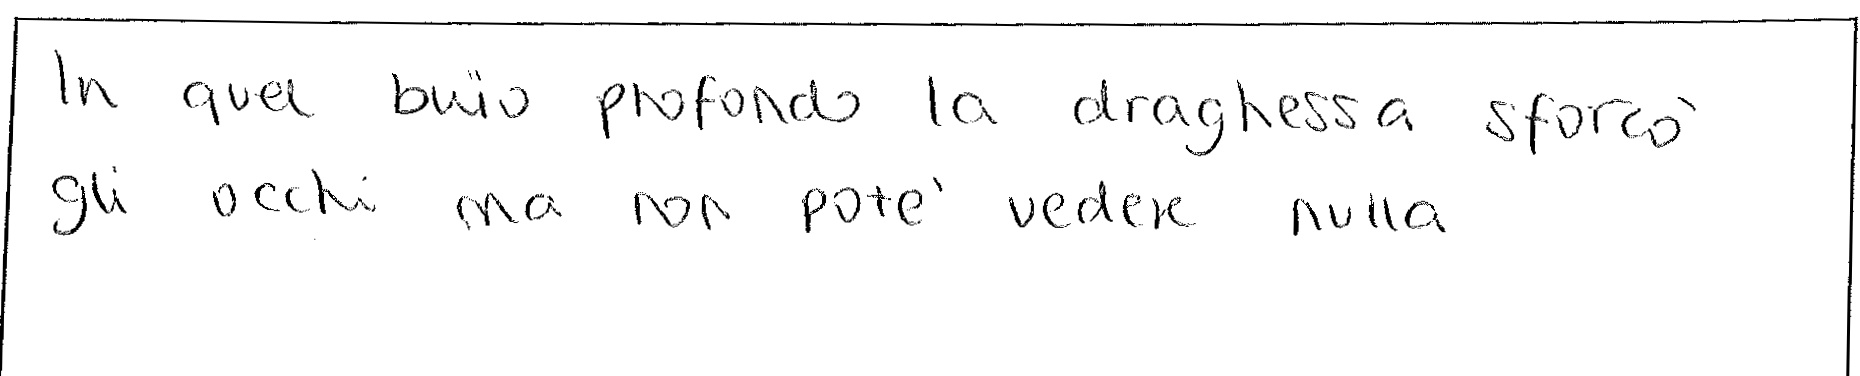 In quel buio profondo la draghessa sforzò
gli occhi ma non potè vedere nulla